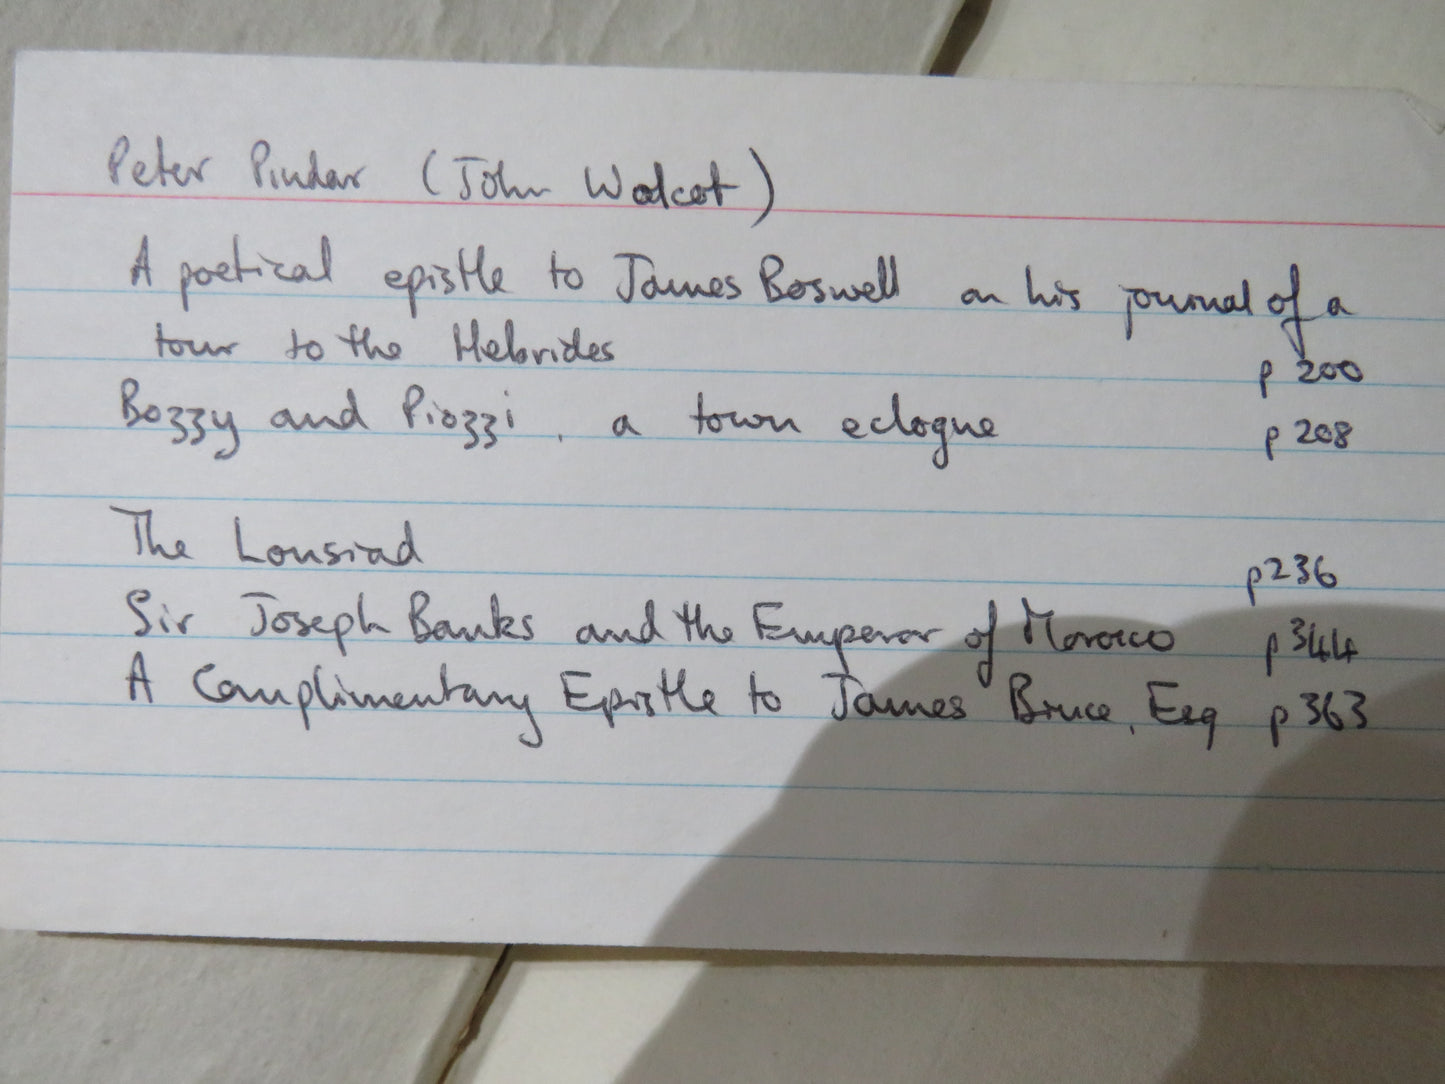 Peter Pindar (John Wolcot)
A poetical epistle to James Boswell on his journal of a
tour to the Hebrides p 200
Bozzy and Piozzi, a town eclogue p 208
The Lousiad p236
Sir Joseph Banks and the Emperor of Morocco p344
A Complimentary Epistle to James Bruce, Esq p 363